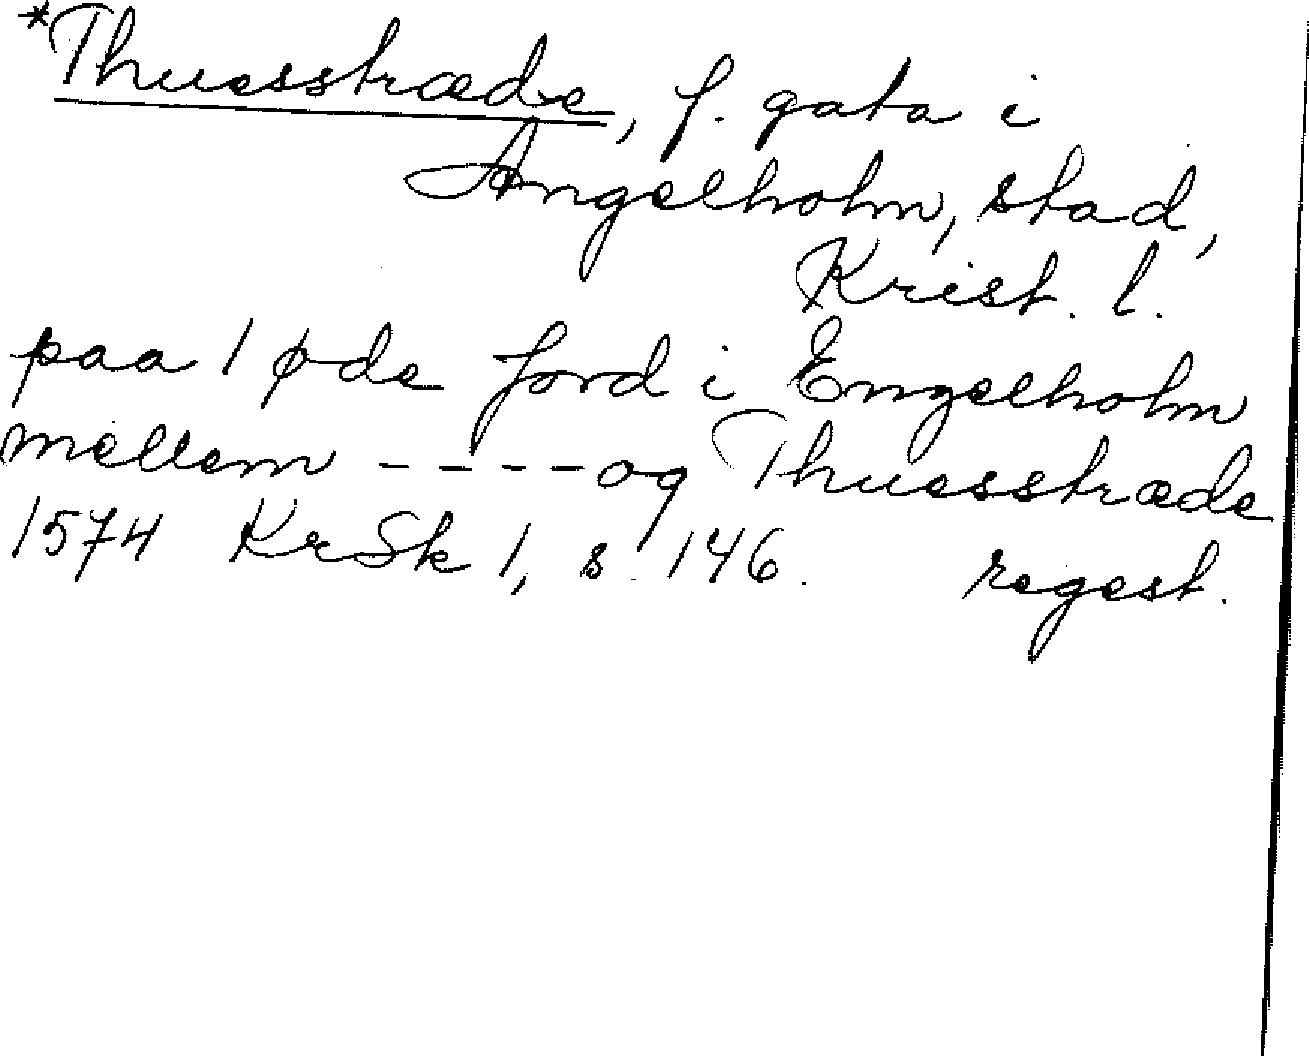 *Thuesstræde, f. gata i
Ängelholm, stad,
Krist. l.
paa 1 øde Jord i Engelholm
mellem ---- og Thuesstræde
1574 KrSk 1, s. 146. regest.